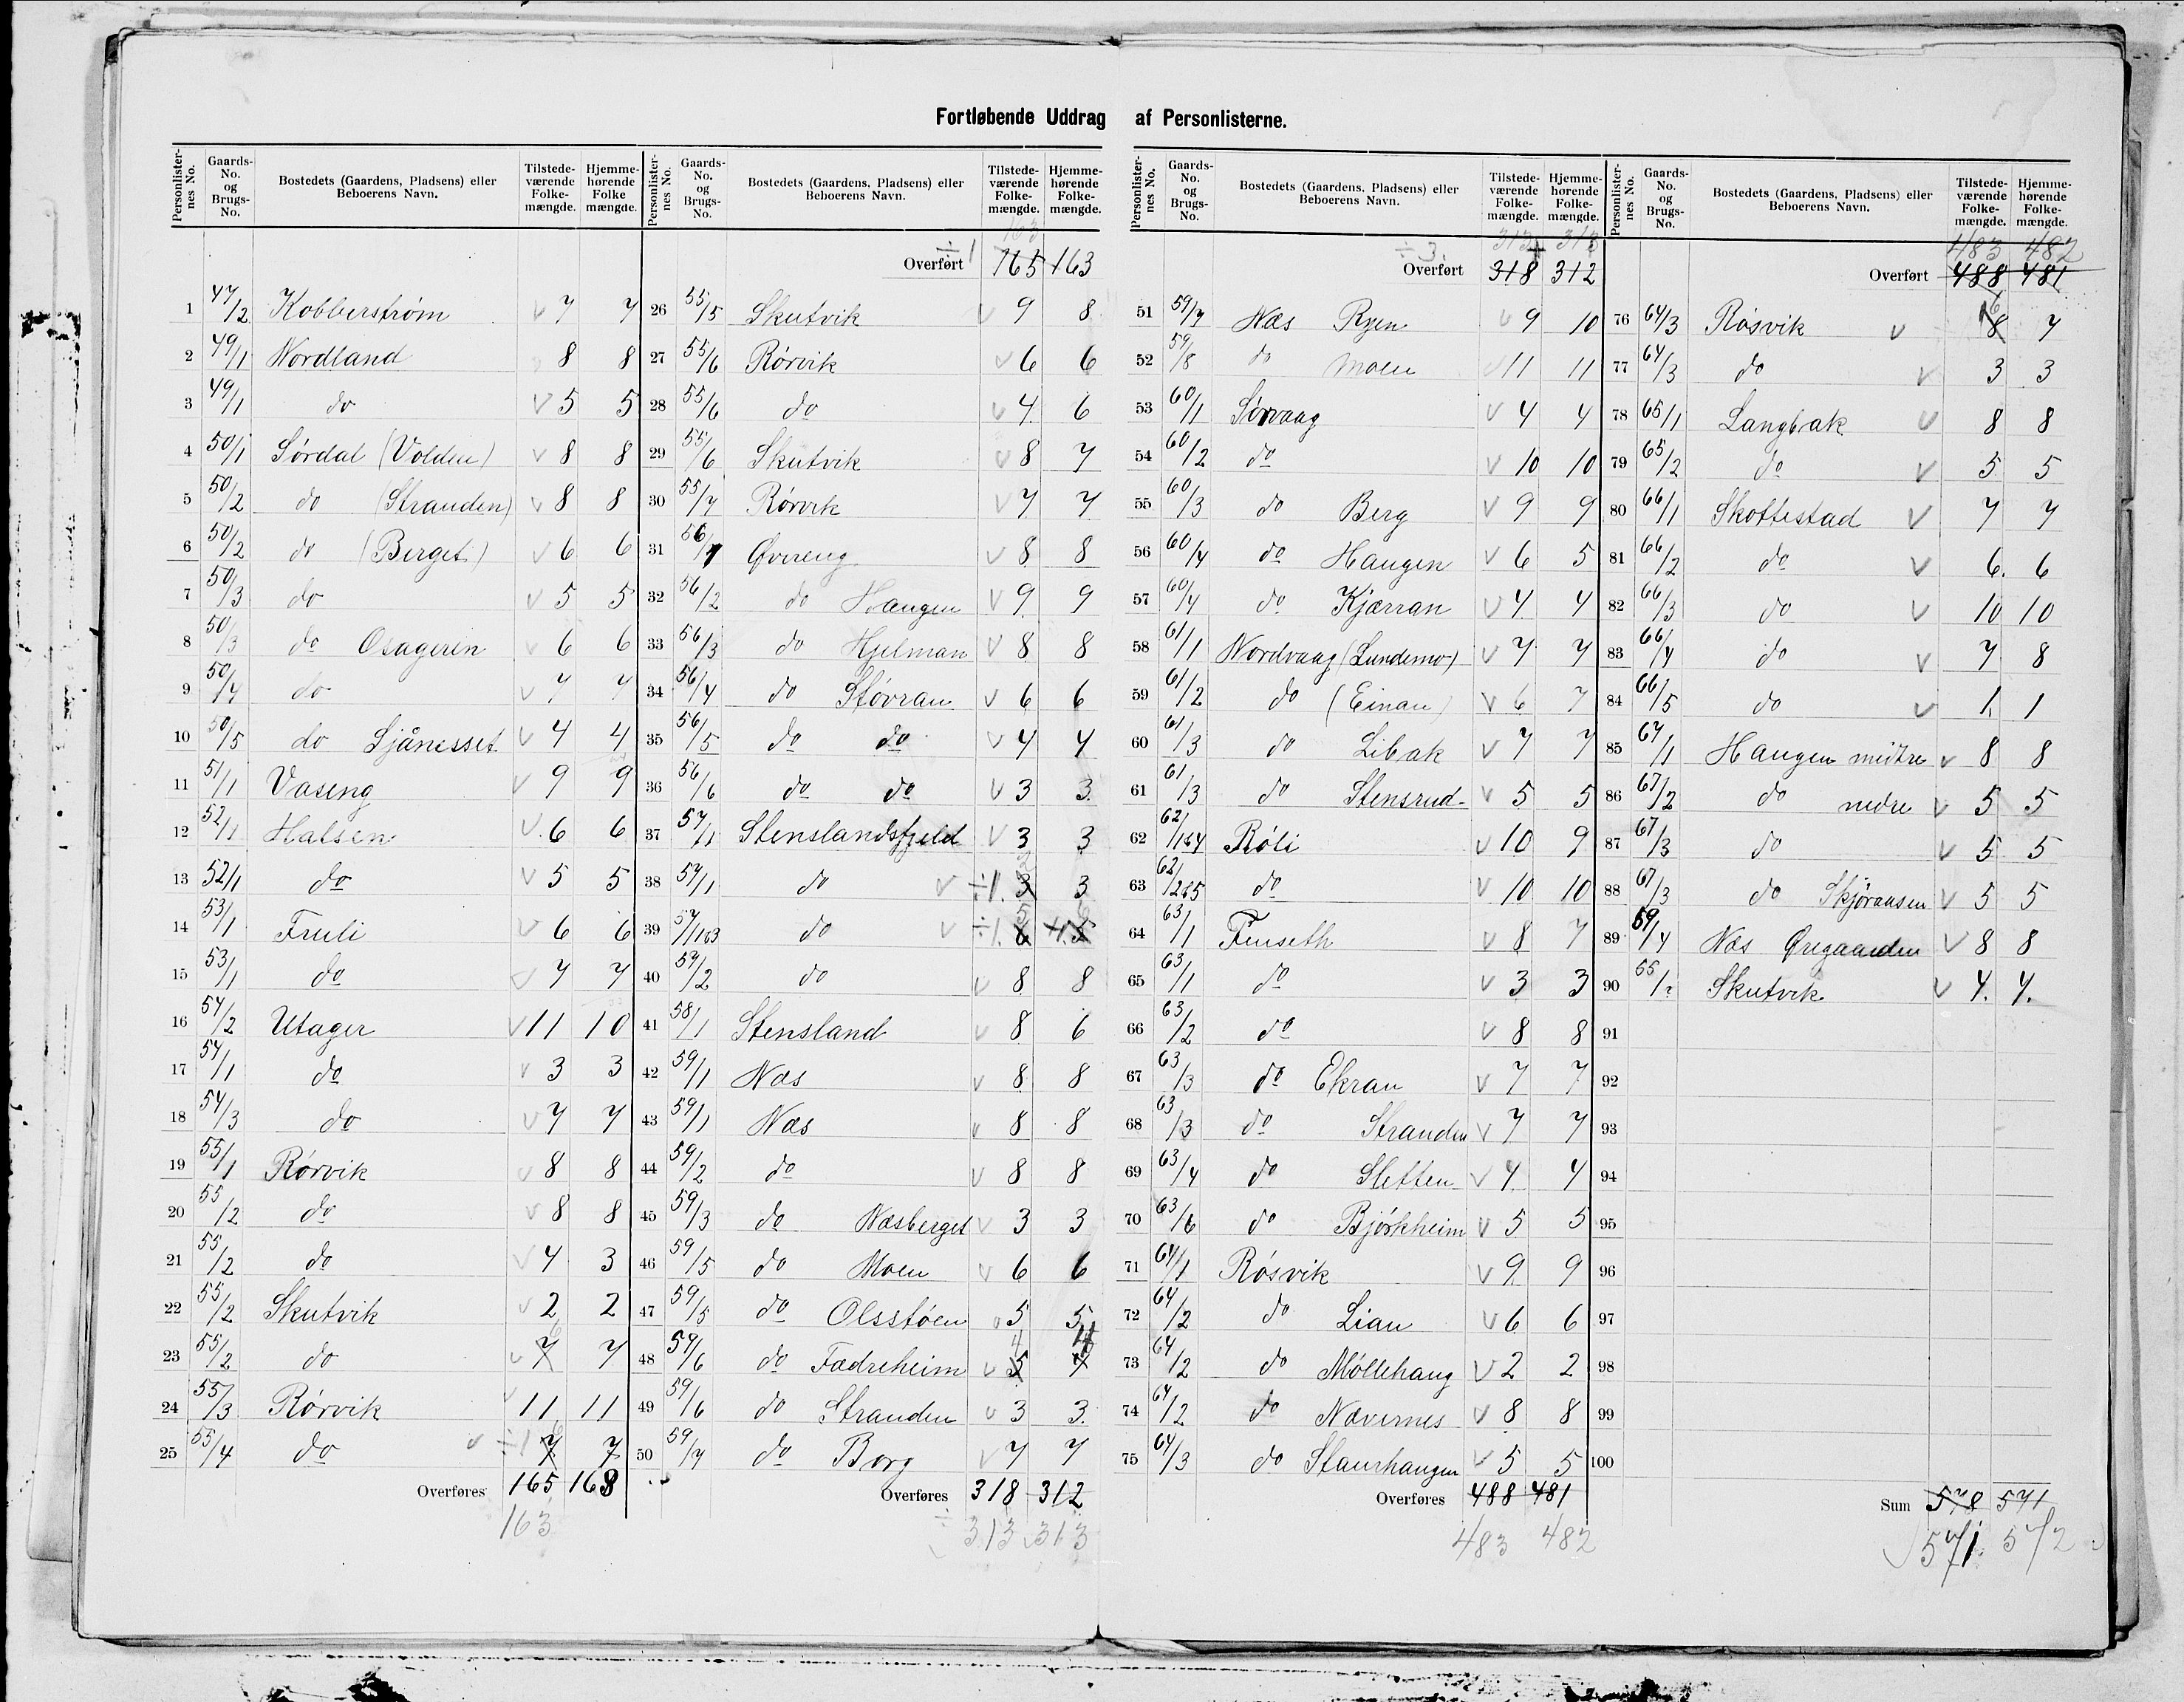 Fortløbende Uddrag af Personlisterne.
Personlister-nes No. Gaards-No. og Brugs-No. Bostedets (Gaardens, Pladsens) eller Beboerens Navn. Tilstede-værende Folke-mængde. Hjemme-hørende Folke mængde.
1 47/2 Kobberstrøm v 7 7
2 49/1 Nordland 8 8
3 49/1 do v 5 5
4 50/1 Sørdal (Volden) v 8 8
5 50/2 do (Stranden) v 8 8
6 50/2 do (Berget) v 6 6
7 50/3 do v 5 5
8 50/3 do Osageren v 6 6
9 50/4 do v 7 7
10 50/5 do Sjånesset v 4 4
11 51/1 Vaseng v 9 9
12 52/1 Halsen v 6 6
13 52/1 do v 5 5
14 53/1 Fruli v 6 6
15 53/1 do v 7 7
16 54/2 Utager v 11 10
17 54/1 do v 3 3
18 54/3 do v 7 7
19 55/1 Rørvik v 8 8
20 55/2 do v 8 8
21 55/2 do v 4 3
22 55/2 Skutvik v 2 2
23 55/2 do v 7 6 7
24 55/3 Rørvik v 11 11
25 55/4 do v ÷1 7 6 7
Overføres 165 163
163
Personlister-nes No. Gaards-No. og Brugs-No. Bostedets (Gaardens, Pladsens) eller Beboerens Navn. Tilstede-værende Folke-mængde. Hjemme-hørende Folke-mængde.
163
÷1 Overført 165 163
26 55/5 Skutvik v 9 8
27 55/6 Rørvik v 6 6
28 55/6 do v 4 6
29 55/6 Skutvik v 8 7
30 55/7 Rørvik v 7 7
31 56/1 Øvereng v 8 8
32 56/2 do Haugen v 9 9
33 56/3 do Hjelman v 8 8
34 56/4 do Støvran v 6 6
35 56/5 do do v 4 4
36 56/6 do do v 3 3
37 57/1 Stenslandsfjeld v 3 3
38 57/1 do v ÷1. 3 2 3
39 57/1&3 do v ÷1. 6 5 +1 5 6
40 57/2 do v 8 8
41 58/1 Stensland v 8 6
42 59/1 Næs v 8 8
43 59/1 Næs v 8 8
44 59/2 do v 8 8
45 59/3 do Næsberget v 3 3
46 59/5 do Moen v 6 6
47 59/5 do Olsstøen v 5 5
48 59/6 do Fædreheim v 5 4 4
49 59/6 do Stranden v 3 3
50 59/7 do Borg v 7 7
Overføres 318 312
÷ 313 313
Personlister-nes No. Gaards-No. og Brugs-No. Bostedets (Gaardens, Pladsens) eller Beboerens Navn. Tilstede-værende Folke-mængde. Hjemme-hørende Folke-mængde.
÷3 313 + 313
Overført 318 312
51 59/7 Næs Ryen v 9 10
52 59/8 do Moen v 11 11
53 60/1 Sørvaag v 4 4
54 60/2 do v 10 10
55 60/3 do Berg v 9 9
56 60/4 do Haugen v 6 5
57 60/4 do Kjærran v 4 4
58 61/1 Nordvaag (Lundemo) v 7 7
59 61/2 do (Einan) v 6 7
60 61/3 do Libak v 7 7
61 61/3 do Stensrud v 5 5
62 62/1&4 Røli v 10 9
63 62/2&5 do v 10 10
64 63/1 Finseth v 8 7
65 63/1 do v 3 3
66 63/2 do v 8 8
67 63/3 do Ekran v 7 7
68 63/3 do Stranden v 7 7
69 63/4 do Sletten v 4 4
70 63/6 do Bjørkheim v 5 5
71 64/1 Røsvik v 9 9
72 64/2 do Lian v 6 6
73 64/2 do Møllehaug v 2 2
74 64/2 do Nævernes v 8 8
75 64/3 do Staurhaugen v 5 5
Overføres 488 481
483 482
Personlister-nes No. Gaards-No. og Brugs-No. Bostedets (Gaardens, Pladsens) eller Beboerens Navn. Tilstede-værende Folke-mængde. Hjemme-hørende Folke-mængde.
483 482
Overført 488 481
76 64/3 Røsvik v 8 6 7
77 64/3 do v 3 3
78 65/1 Langbak v 8 8
79 65/2 do v 5 5
80 66/1 Skottestad v 7 7
81 66/2 do v 6. 6
82 66/3 do v 10 10
83 66/4 do v 7 8
84 66/5 do v 1. 1
85 67/1 Haugen midtre v 8 8
86 67/2 do nedre v 5 5
87 67/3 do v 5 5
88 67/3 do Skjøraasen v 5 5
89 59/4 Næs Øregaarden v 8 8
90 55/2 Skutvik v 4. 4.
91
92
93
94
95
96
97
98
99
100
Sum 578 571
571. 572